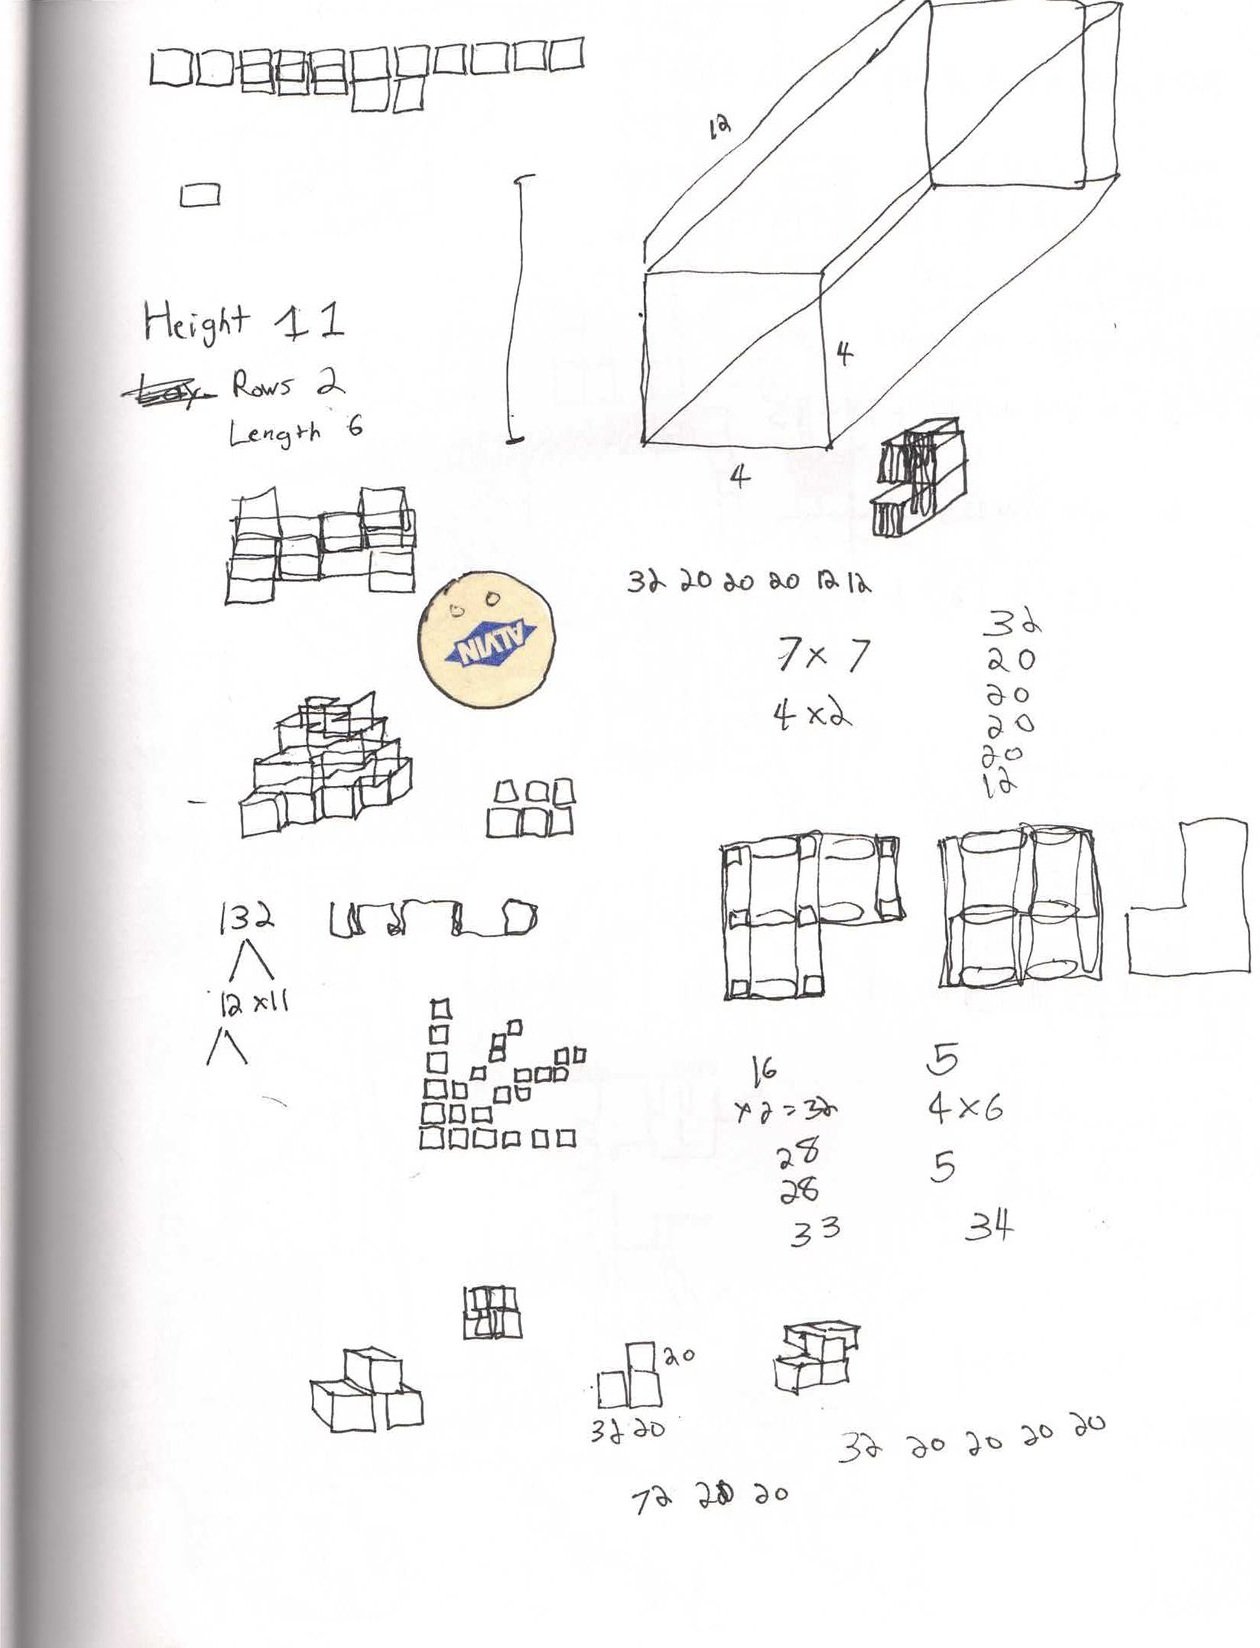 12
Height 11
Rows 2
Length 6
4
4
32 20 20 20 12 12
ALVIN
7 x 7
4 x 2
32
20
20
20
20
12
132
12 x 11
16
x 2 = 32
28
28
33
5
4 x 6
5
34
20
32 20
32 20 20 20 20
72 20 20